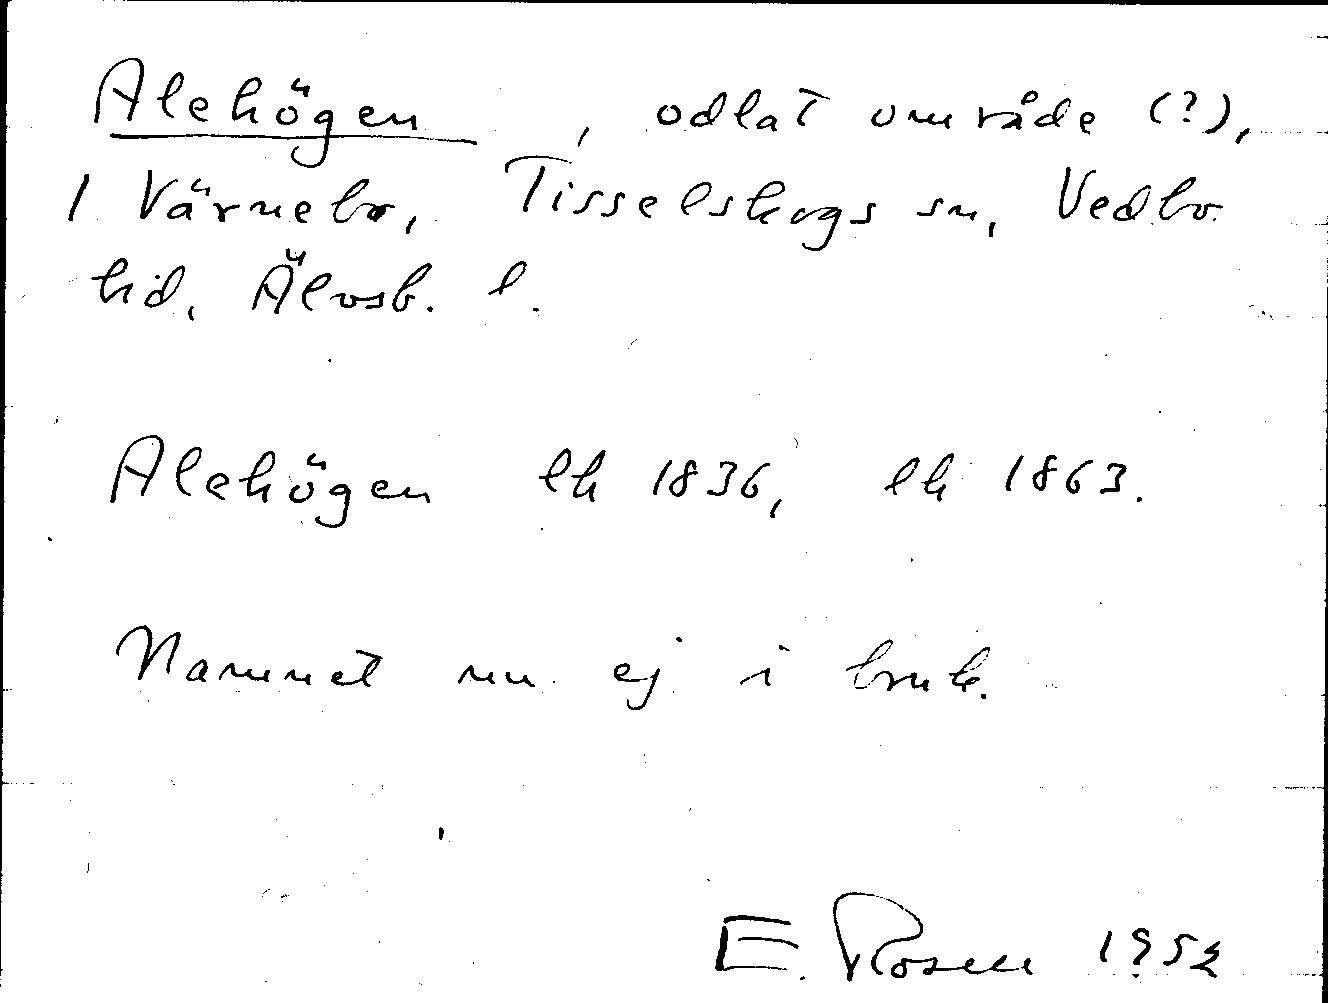 Alehögen, odlat område (?),
1 Värnebo, Tisselskogs sn, Vedbo
hd, Älvsb. l.
Alehögen lk 1836, lk 1863.
Namnet nu ej i bruk.
E. Rosell 1952